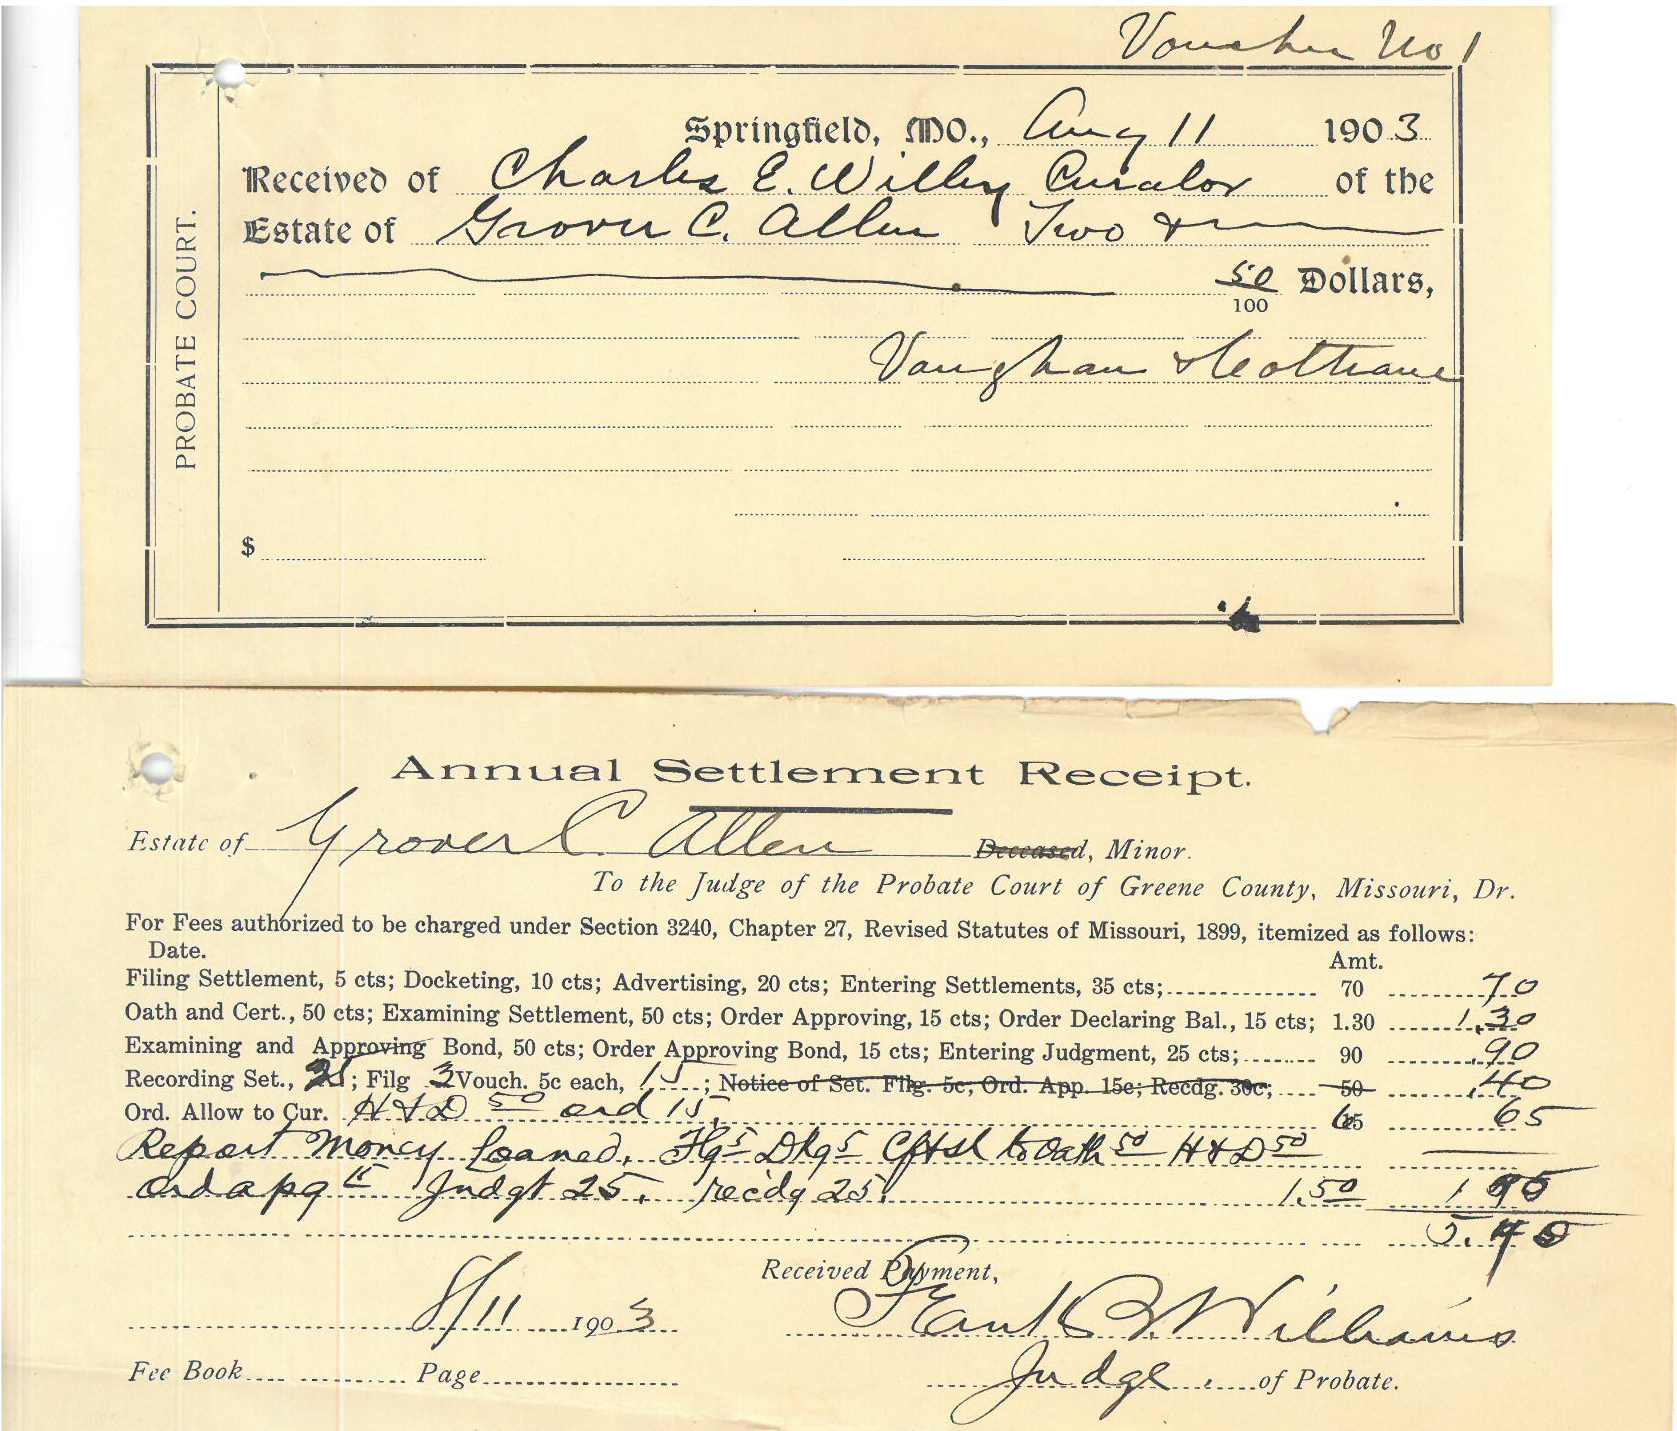 Voucher No 1
Springfield, MO., Aug 11 1903
Received of Charles E. Willey Curator of the
Estate of Grover C. Allen Two &
50/100 Dollars,
Vaughan & Coltrane
PROBATE COURT.
$
Annual Settlement Receipt.
Estate of Grover C. Allen Deceased, Minor.
To the Judge of the Probate Court of Greene County, Missouri, Dr.
For Fees authorized to be charged under Section 3240, Chapter 27, Revised Statutes of Missouri, 1899, itemized as follows:
Date. Amt.
Filing Settlement, 5 cts; Docketing, 10 cts; Advertising, 20 cts; Entering Settlements, 35 cts; 70 70
Oath and Cert., 50 cts; Examining Settlement, 50 cts; Order Approving, 15 cts; Order Declaring Bal., 15 cts; 1.30 1.30
Examining and Approving Bond, 50 cts; Order Approving Bond, 15 cts; Entering Judgment, 25 cts; 90 .90
Recording Set., ; Filg 3 Vouch. 5c each, 15; Notice of Set. Filg. 5c, Ord. App. 15c; Recdg. 30c; 50 .40
Ord. Allow to Cur. H & D 50 ord 15, 65 65
Report Money Loaned, Flg 5 Dkg 5 to Oath 50 H & D 50
Ord apg 15 Judgt 25. recdg 25. 1.50 1.95
5.40
Received Payment,
8/11 1903 Frank B. Williams
Fee Book Page Judge of Probate.